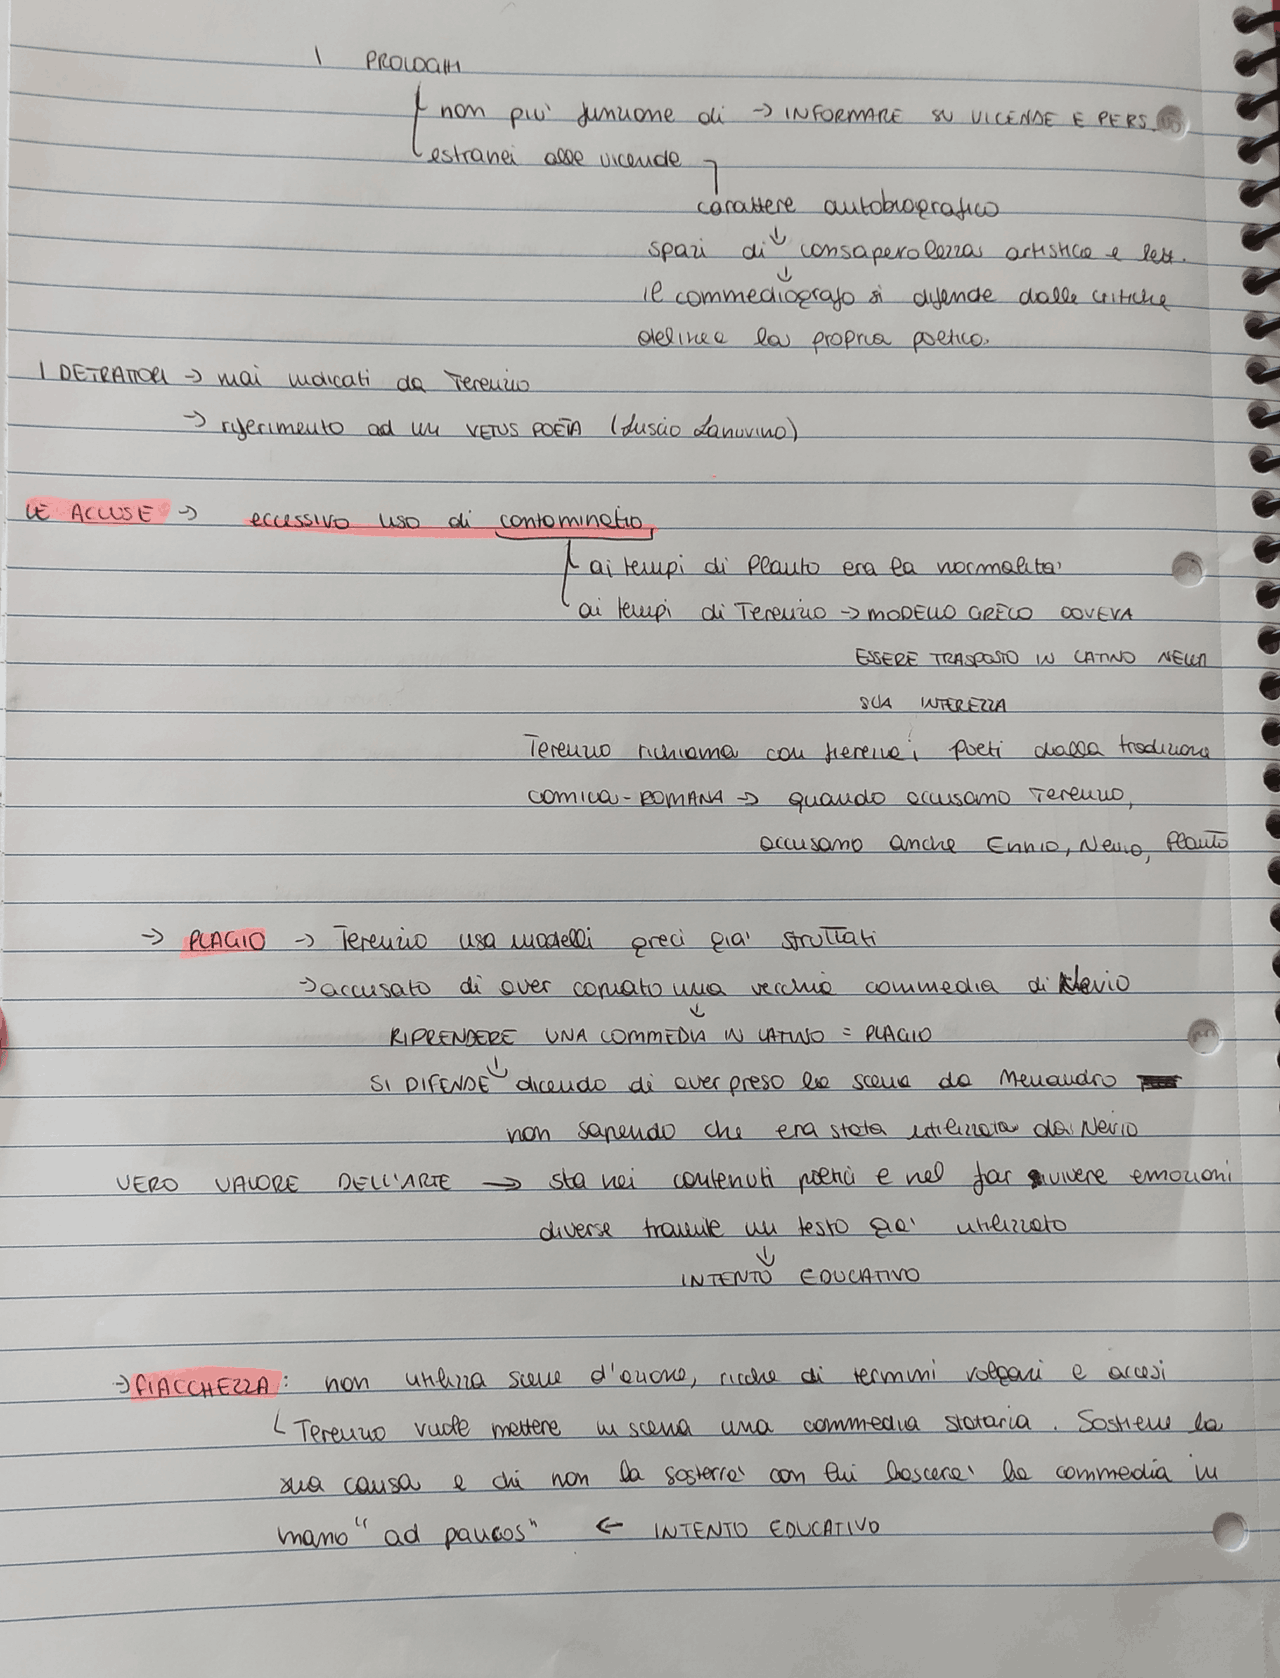 I PROLOGHI
non più funzione di → INFORMARE SU VICENDE E PERS.
estranei alle vicende
carattere autobiografico
spazi di consapevolezza artistica e lett.
il commediografo si difende dalle critiche
delinea la propria poetica.
I DETRATTORI → mai indicati da Terenzio
→ riferimento ad un VETUS POETA (Luscio Lanuvino)
LE ACCUSE → eccessivo uso di contaminatio
ai tempi di Plauto era la normalità
ai tempi di Terenzio → MODELLO GRECO DOVEVA
ESSERE TRASPOSTO IN LATINO NELLA
SUA INTEREZZA
Terenzio richiama con fierezza i poeti della tradizione
comica-ROMANA → quando accusamo Terenzio,
accusano anche Ennio, Nevio, Plauto
→ PLAGIO → Terenzio usa modelli greci già sfruttati
→ accusato di aver copiato una vecchia commedia di Nevio
↓
RIPRENDERE UNA COMMEDIA IN LATINO = PLAGIO
SI DIFENDE ↓ dicendo di aver preso la scena da Menandro
non sapendo che era stata utilizzata da Nevio
VERO VALORE DELL'ARTE → sta nei contenuti poetici e nel far vivere emozioni
diverse tramite un testo già utilizzato
↓
INTENTO EDUCATIVO
→ FIACCHEZZA: non utilizza scene d'azione, ricche di termini volgari e accesi
Terenzio vuole mettere in scena una commedia stataria. Sostiene la
sua causa e chi non la sosterrà con lui lascerà la commedia in
mano "ad paucos" ← INTENTO EDUCATIVO